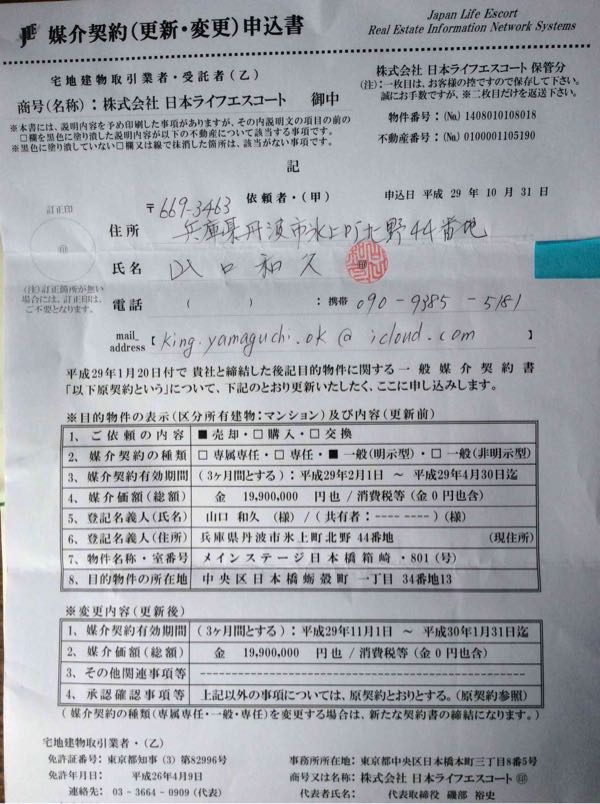 媒介契約（更新・変更）申込書
Japan Life Escort
Real Estate Information Network Systems
宅地建物取引業者・受託者（乙）
商号（名称）：株式会社 日本ライフエスコート 御中
※本書には、説明内容を予め印刷した事項がありますが、その内説明文の項目の前の
□欄を黒色に塗り潰した説明内容が以下の不動産について該当する事項です。
※黒色に塗り潰していない□欄又は線で抹消した箇所は、該当がない事項です。
株式会社 日本ライフエスコート 保管分
（注）：一枚目は、お客様の控ですので保存して下さい。
誠にお手数ですが、※二枚目だけを返送下さい。
物件番号：(№) 1408010108018
不動産番号：(№) 0100001105190
記
依頼者・（甲）
申込日 平成 29 年 10 月 31 日
訂正印
㊞
（注）訂正箇所が無い
場合には、訂正印は、
ご不要となります。
〒669-3463
住所 兵庫県丹波市氷上町北野44番地
氏名 山口和久 ㊞
電話 （ ） ：携帯 090-9385-5181
mail_address 【king.yamaguchi.ok@icloud.com 】
平成29年1月20日付で 貴社と締結した後記目的物件に関する一般媒介契約書
「以下原契約という」について、下記のとおり更新いたしたく、ここに申し込みします。
※目的物件の表示（区分所有建物：マンション）及び内容（更新前）
1、ご依頼の内容 ■売却・□購入・□交換
2、媒介契約の種類 □専属専任・□専任・■一般（明示型）・□一般（非明示型）
3、媒介契約有効期間 （3ヶ月間とする）：平成29年2月1日 ～ 平成29年4月30日迄
4、媒介価額（総額） 金 19,900,000 円也 / 消費税等（金 0 円也含）
5、登記名義人（氏名） 山口 和久 （様）/（共有者：---- ----）（様）
6、登記名義人（住所） 兵庫県丹波市氷上町北野 44番地 （現住所）
7、物件名称・室番号 メインステージ日本橋箱崎・801（号）
8、目的物件の所在地 中央区日本橋蛎殻町 一丁目 34番地13
※変更内容（更新後）
1、媒介契約有効期間 （3ヶ月間とする）：平成29年11月1日 ～ 平成30年1月31日迄
2、媒介価額（総額） 金 19,900,000 円也 / 消費税等（金 0 円也含）
3、その他関連事項等
4、承認確認事項等 上記以外の事項については、原契約とおりとする。（原契約参照）
（媒介契約の種類（専属専任・一般・専任）を変更する場合は、新たな契約書の締結になります。）
宅地建物取引業者・（乙）
免許証番号：東京都知事（3）第82996号
免許年月日： 平成26年4月9日
連絡先： 03-3664-0909（代表）
事務所所在地：東京都中央区日本橋本町三丁目8番5号
商号又は名称：株式会社 日本ライフエスコート ㊞
代表者氏名： 代表取締役 磯部 裕史